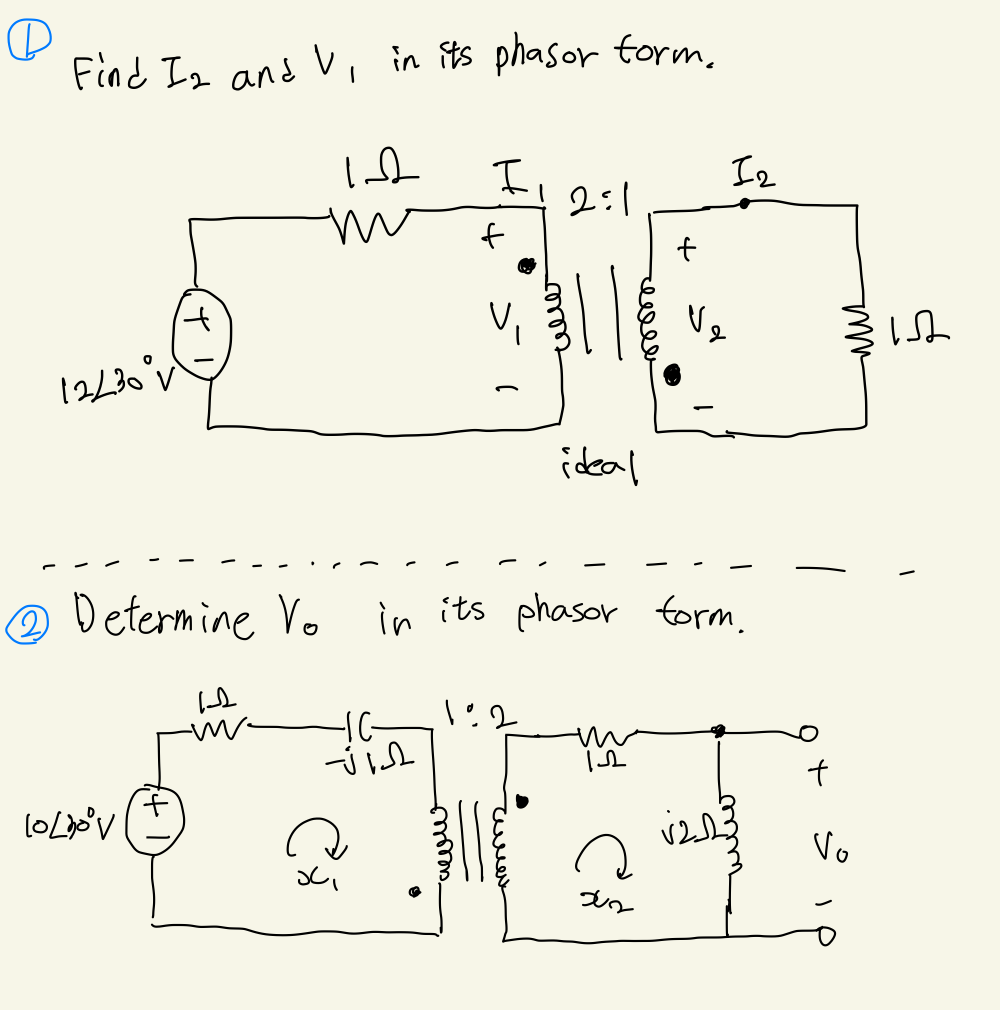 ①
Find I₂ and V₁ in its phasor form.
1Ω I₁ 2:1 I₂
+ +
V₁ V₂ 1Ω
+
−
12∠30°V
− −
ideal
② Determine V₀ in its phasor form.
1Ω 1:2
−j1Ω 1Ω
+
10∠30°V + j2Ω
− V₀
x₁ x₂
−